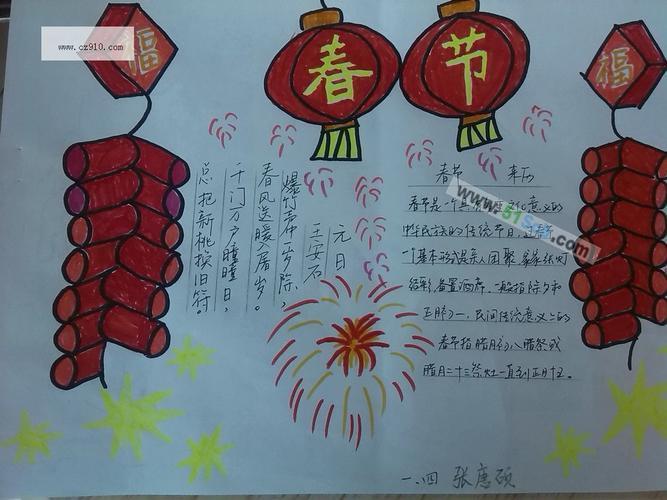 www.cz910.com
福
春节
福
元日
王安石
爆竹声一岁除，
春风送暖入屠岁。
千门万户瞳瞳日，
总把新桃换旧符。
春节 来历
春节是 意义的
中华民族的传统节日，
一个基本形式是亲人团聚
结彩备置酒席，一般指除夕和
正月初一，民间传统意义上的
春节指腊月初八腊祭或
腊月二十三祭灶一直到正月十五。
一、四 张唐硕